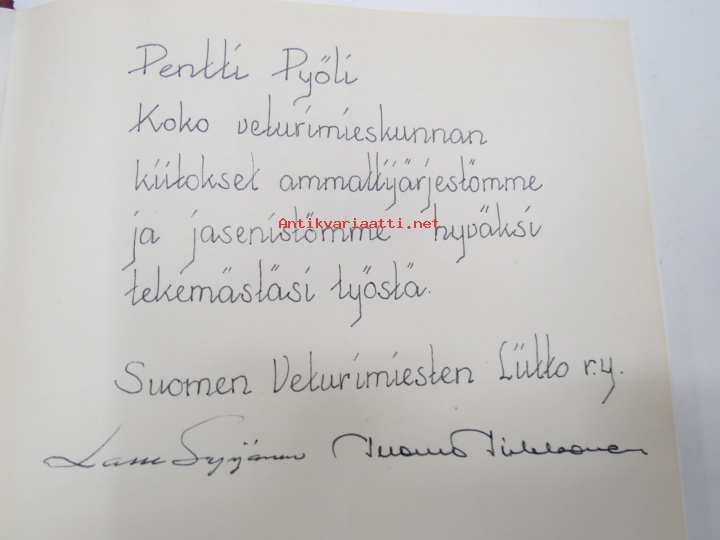 Pentti Pyöli
Koko veturimieskunnan
kiitokset ammattijärjestömme
Antikvariaatti.net
ja jasenistömme hyväksi
tekemästäsi työstä.
Suomen Veturimiesten Liitto r.y.
Lasse